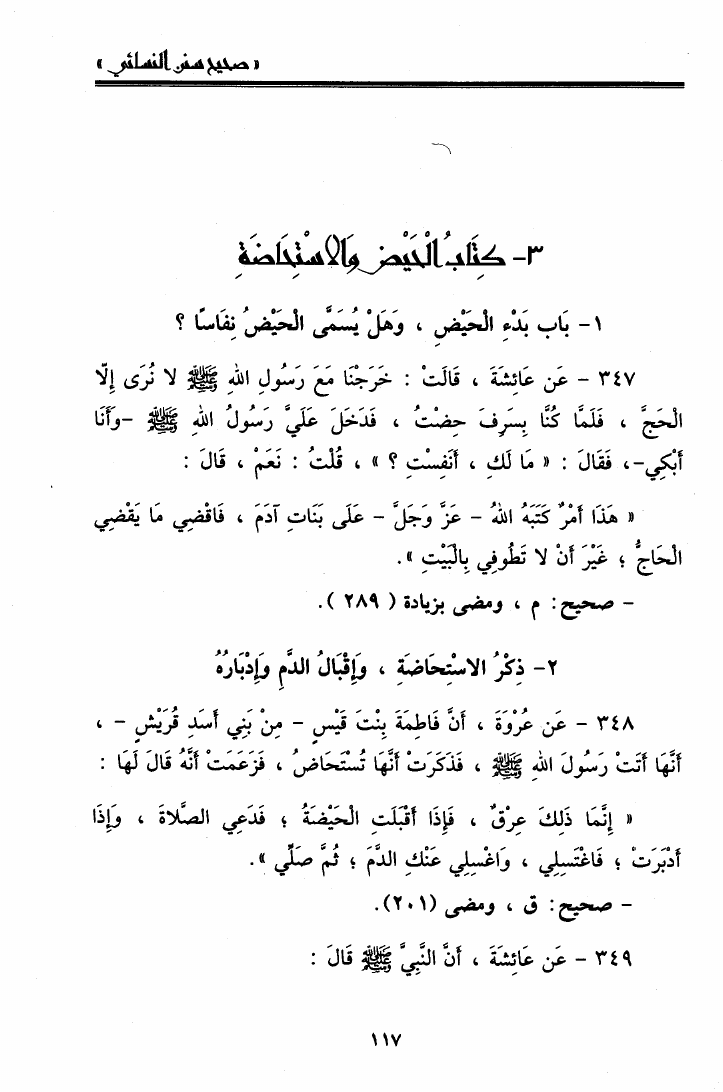 « صحيح سنن النسائي »
٣- كِتَابُ الْحَيْضِ وَالاِسْتِحَاضَةِ
١- بَاب بَدْءِ الْحَيْضِ ، وَهَلْ يُسَمَّى الْحَيْضُ نِفَاسًا ؟
٣٤٧ - عَن عَائِشَةَ ، قَالَتْ : خَرَجْنَا مَعَ رَسُولِ اللهِ ﷺ لا نُرَى إِلّا
الْحَجَّ ، فَلَمَّا كُنَّا بِسَرِفَ حِضْتُ ، فَدَخَلَ عَلَيَّ رَسُولُ اللهِ ﷺ -وَأَنَا
أَبْكِي-، فَقَالَ : « مَا لَكِ ، أَنَفِسْتِ ؟ » ، قُلْتُ : نَعَمْ ، قَالَ :
« هَذَا أَمْرٌ كَتَبَهُ اللهُ - عَزَّ وَجَلَّ - عَلَى بَنَاتِ آدَمَ ، فَاقْضِي مَا يَقْضِي
الْحَاجُّ ؛ غَيْرَ أَنْ لا تَطُوفِي بِالْبَيْتِ ».
- صحيح: م ، ومضى بزيادة ( ٢٨٩ ).
٢- ذِكْرُ الاسْتِحَاضَةِ ، وَإِقْبَالُ الدَّمِ وَإِدْبَارُهُ
٣٤٨ - عَن عُرْوَةَ ، أَنَّ فَاطِمَةَ بِنْتَ قَيْسٍ - مِنْ بَنِي أَسَدِ قُرَيْشٍ - ،
أَنَّهَا أَتَتْ رَسُولَ اللهِ ﷺ ، فَذَكَرَتْ أَنَّهَا تُسْتَحَاضُ ، فَزَعَمَتْ أَنَّهُ قَالَ لَهَا :
« إِنَّمَا ذَلِكَ عِرْقٌ ، فَإِذَا أَقْبَلَتِ الْحَيْضَةُ ؛ فَدَعِي الصَّلاةَ ، وَإِذَا
أَدْبَرَتْ ؛ فَاغْتَسِلِي ، وَاغْسِلِي عَنْكِ الدَّمَ ؛ ثُمَّ صَلِّي ».
- صحيح: ق ، ومضى (٢٠١).
٣٤٩ - عَن عَائِشَةَ ، أَنَّ النَّبِيَّ ﷺ قَالَ :
١١٧